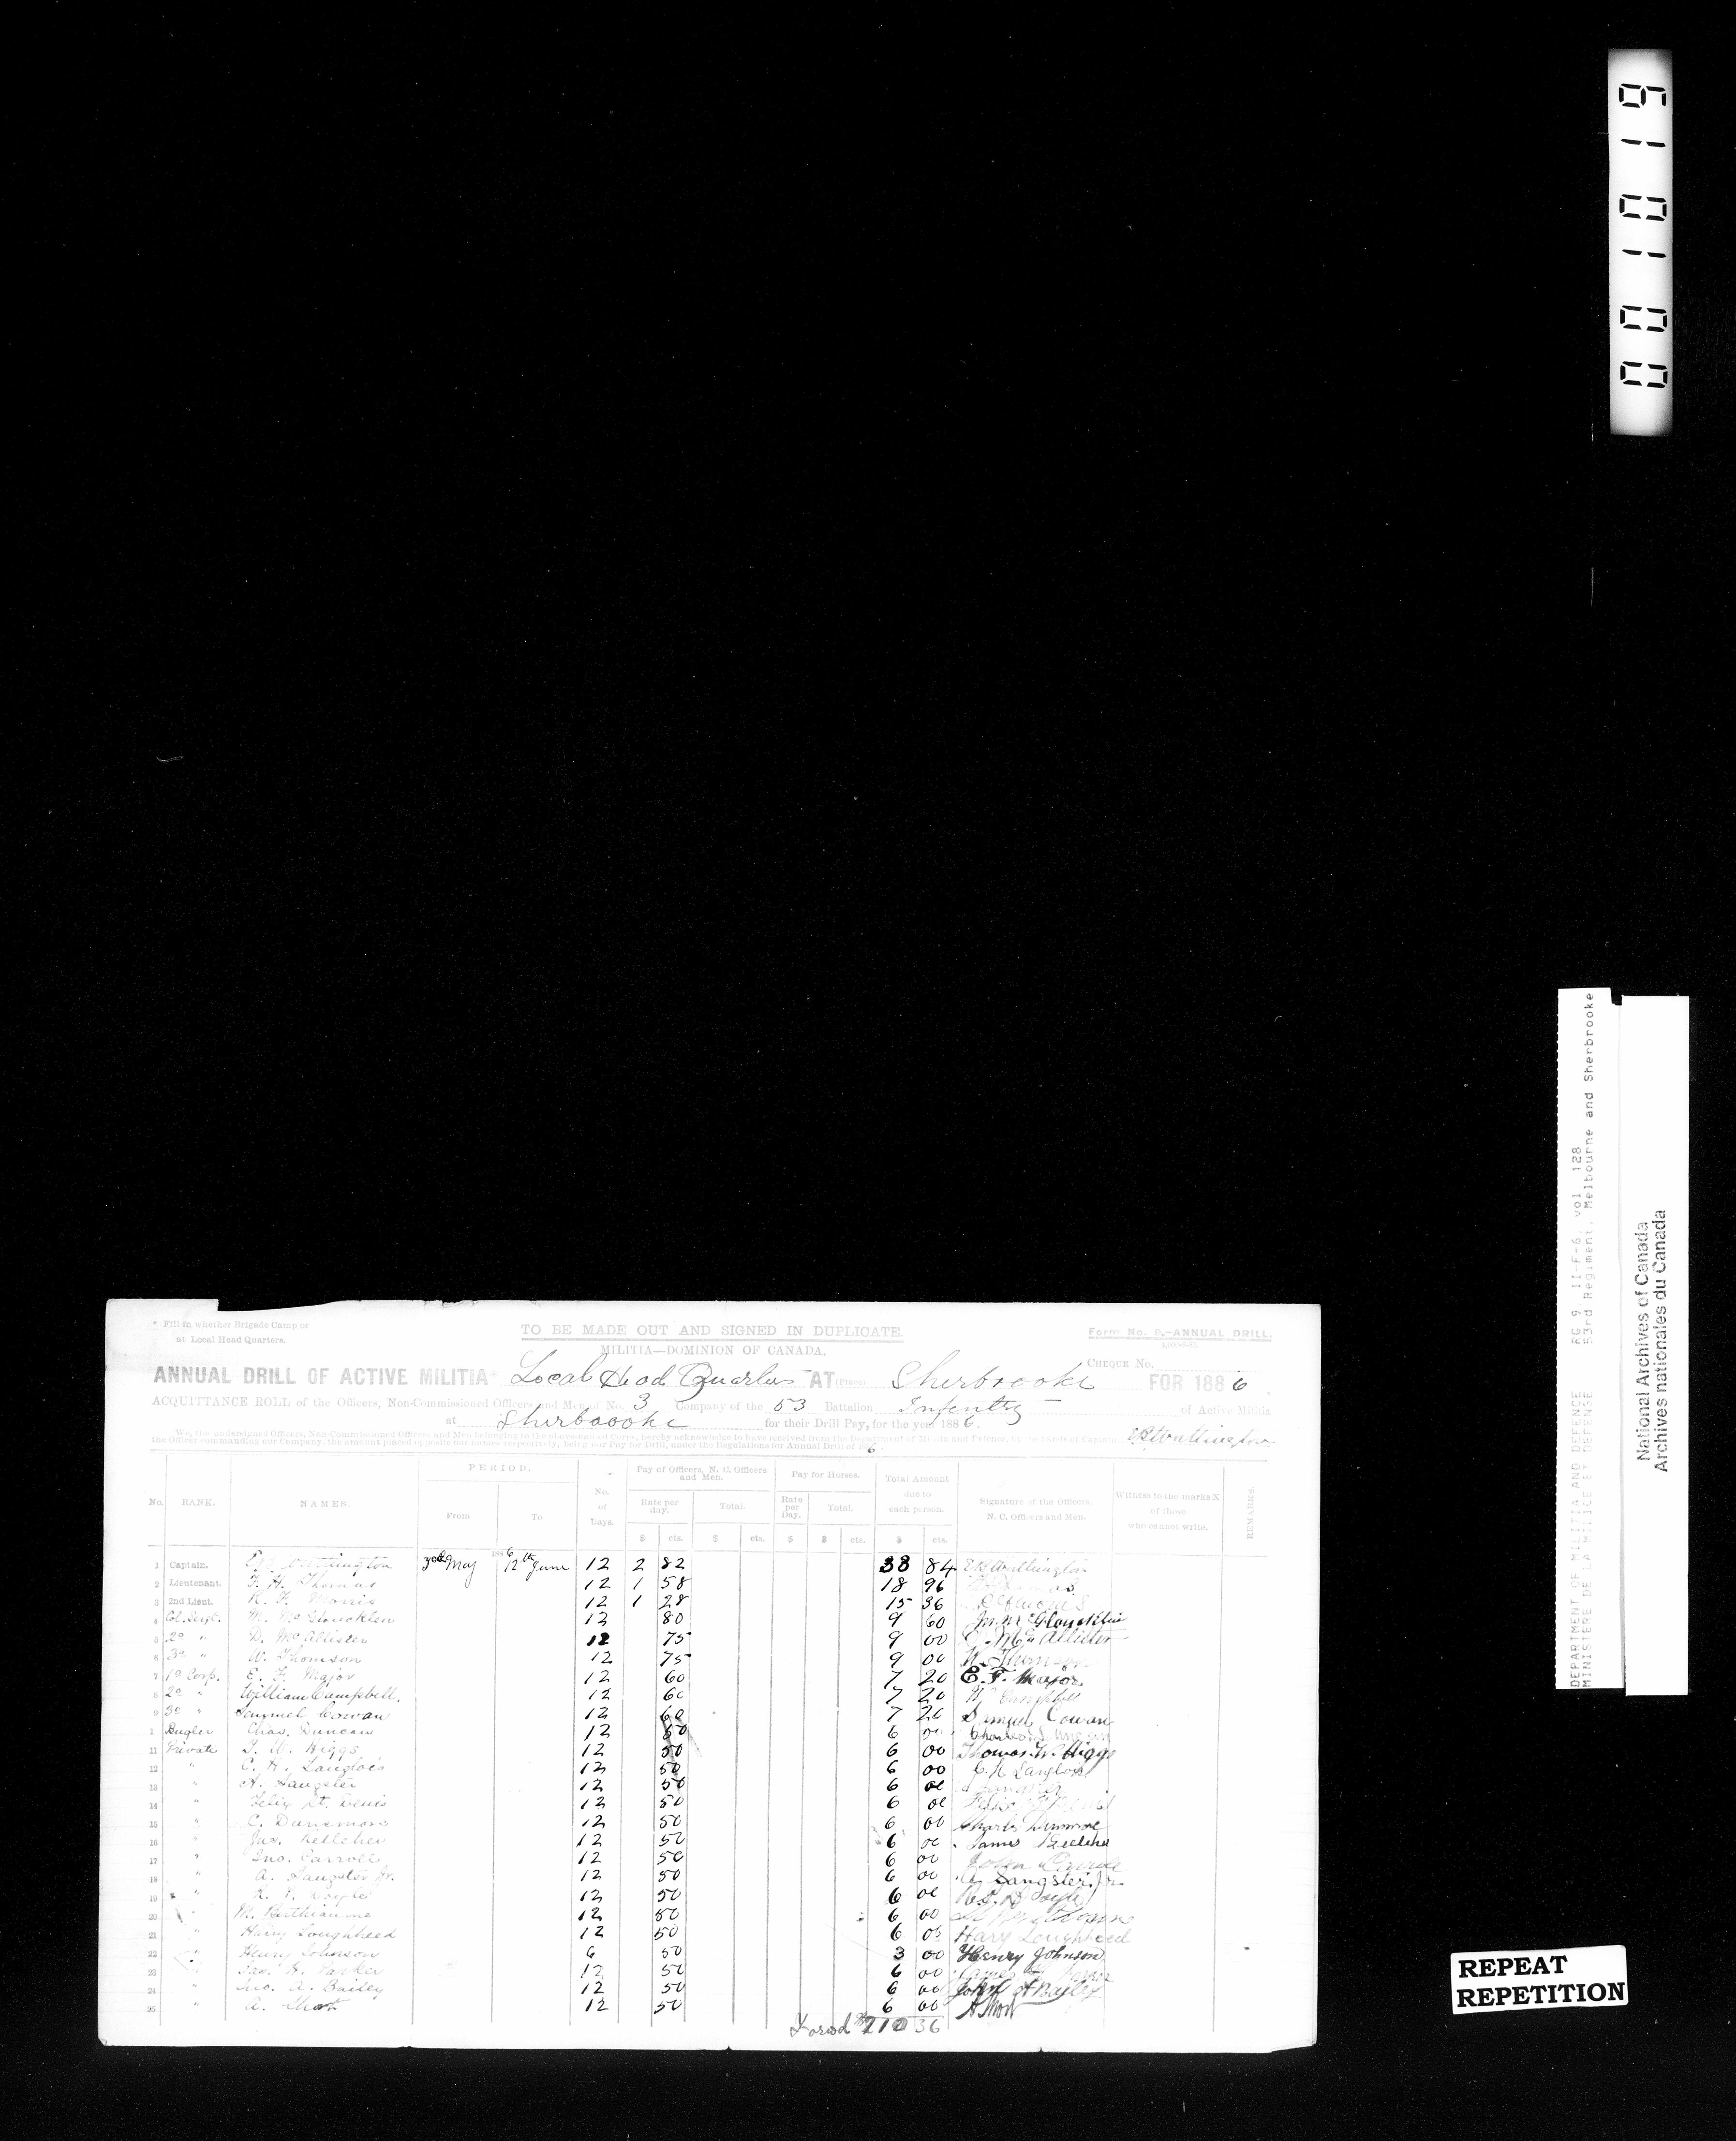 0 0 1 0 1 9
* Fill in whether Brigade Camp or
at Local Head Quarters.
TO BE MADE OUT AND SIGNED IN DUPLICATE.
Form No. 8.—ANNUAL DRILL.
MILITIA—DOMINION OF CANADA.
CHEQUE No.
ANNUAL DRILL OF ACTIVE MILITIA* Local Head Quarters AT (Place) Sherbrooke FOR 1886.
ACQUITTANCE ROLL of the Officers, Non-Commissioned Officers and Men of No. 3 Company of the 53 Battalion Infantry of Active Militia
at Sherbrooke for their Drill Pay, for the year 1886.
We, the undersigned Officers, Non-Commissioned Officers and Men belonging to the above-named Corps, hereby acknowledge to have received from the Department of Militia and Defence, by the hands of Captain
the Officer commanding our Company, the amount placed opposite our names respectively, being our Pay for Drill, under the Regulations for Annual Drill of 1886.
No. RANK. NAMES. PERIOD. From To No. of Days. Pay of Officers, N. C. Officers and Men. Rate per day. Total. Pay for Horses. Rate per Day. Total. Total Amount due to each person. Signature of the Officers, N. C. Officers and Men. Witness to the marks X of those who cannot write. REMARKS.
$ cts. $ cts. $ $ cts. $ cts.
1886
1 Captain. 30th May 12th June 12 2 82 38 84
2 Lieutenant. F. H. Thomas 12 1 58 18 96
3 2nd Lieut. R. F. Morris 12 1 28 15 36
4 Col. Sergt. 12 80 9 60
5 2o " D. McAllister 12 75 9 00 McAllister
6 3o " W. Thomson 12 75 9 00 W. Thomson
7 1o Corp. E. F. Major 12 60 7 20 E. F. Major
8 2o " William Campbell. 12 60 7 20 W Campbell
9 3o " Samuel Cowan 12 60 7 20 Samuel Cowan
1 Bugler Chas. Duncan 12 50 6 00 Charles Duncan
11 Private T. W. Higgs 12 50 6 00 Thomas W. Higgs
12 " C. N. Langlois 12 50 6 00 C. N Langlois
13 " A. Sangster 12 50 6 00
14 " Felix St. Denis 12 50 6 00
15 " C. Dunsmore 12 50 6 00
16 " Jas. Kelleher 12 50 6 00 James
17 " Jno. Carroll 12 50 6 00 John
18 " A. Sangster Jr. 12 50 6 00 A. Sangster. Jr.
19 " 12 50 6 00
20 " M. Berthiaume 12 50 6 00
21 " Harry Lougheed 12 50 6 00 Harry Lougheed
22 " Henry Johnson 6 50 3 00 Henry Johnson
23 " Jas. H. Parker 12 50 6 00 James
24 " Jno. A. Bailey 12 50 6 00 John A Bailey
25 " A. Short 12 50 6 00 A Short
Forwd $210 36
DEPARTMENT OF MILITIA AND DEFENCE RG 9 II-F-6, vol. 128
MINISTERE DE LA MILICE ET DEFENSE 53rd Regiment, Melbourne and Sherbrooke
National Archives of Canada
Archives nationales du Canada
REPEAT
REPETITION